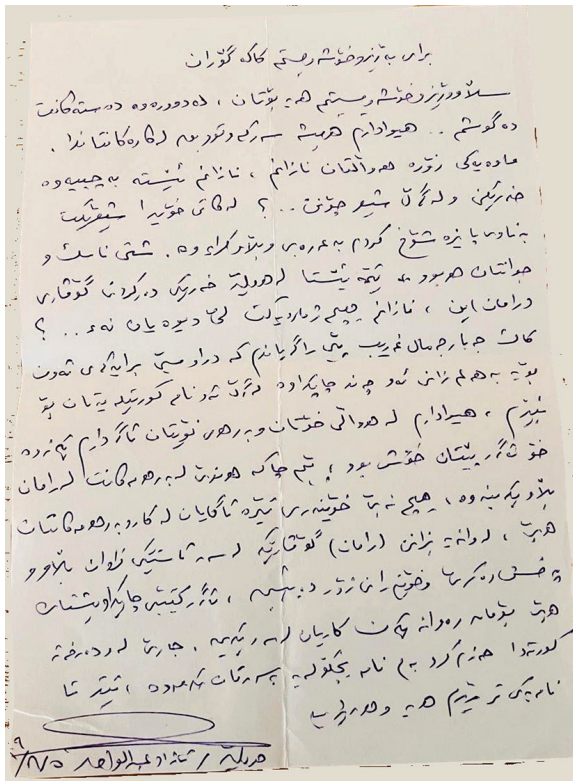 برای بەڕێز و خۆشەویستم کاکە گۆران
سڵاو و ڕێز و خۆشەویستیم هەیە بۆتان ، لە دوورەوە دەستەکانت
دەگوشم .. هیوادارم هەمیشە سەرکەوتوو بی لە کارەکانتاندا .
ماوەیەکی زۆرە هەواڵتان نازانم ، نازانم ئێستە بە چییەوە
خەریکی و لەگەڵ شیعر چۆنی ..؟ لە کاتی خۆیدا شیعرێکت
بەناوی پایزە شۆخ کردم بە عەرەبی و بڵاو کرایەوە . شتی ناسک و
جوانتان هەبوو ئێمە ئێستا لە هەولێر خەریکی دەرکردنی گۆڤاری
ڕامان این ، نازانم هیچ ژمارەیەکت لێ دیوە یان نە ..؟
کاک جەبار جەمال غەریب پێی ڕاگەیاندم کە
بۆیە بە هەلم زانی ئەو چەند چاپکراوە لەگەڵ ئەو نامە کورتیلەیەتان بۆ
بنێرم ، هیوادارم لە هەواڵی خۆتان و بەرهەمی نوێتان ئاگادارم بکەنەوە
خۆ ئەگەر پێتان خۆش بوو ، پێم چاکە هەندێ لە بەرهەمەکانت لە ڕامان
بڵاو بکەیتەوە ، هیچ نەبێ خوێنەری ئێرە ئاگایان لە کار و بەرهەمەکانتان
هەبێ ، لەوانەیە بزانی (ڕامان) گۆڤارێکە لە سەر ئاستێکی فراوان بڵاو و
پەخش دەکرێ و خوێنەرانی زۆر دەیبینن ، ئەگەر کتێبی چاپکراویشتان
هەبێ بۆمان ڕەوانە بکەن کاریان لەسەر بکەین . جارێ لەو دەرفەتە
کورتەدا حەزم کرد بەم نامە بچکۆلەیە بەسەرتان بکەمەوە ، ئیتر تا
نامەیەکی تر ڕێزم هەیە و هەر بژیت
هەولێر / ئازاد عبدالواحد